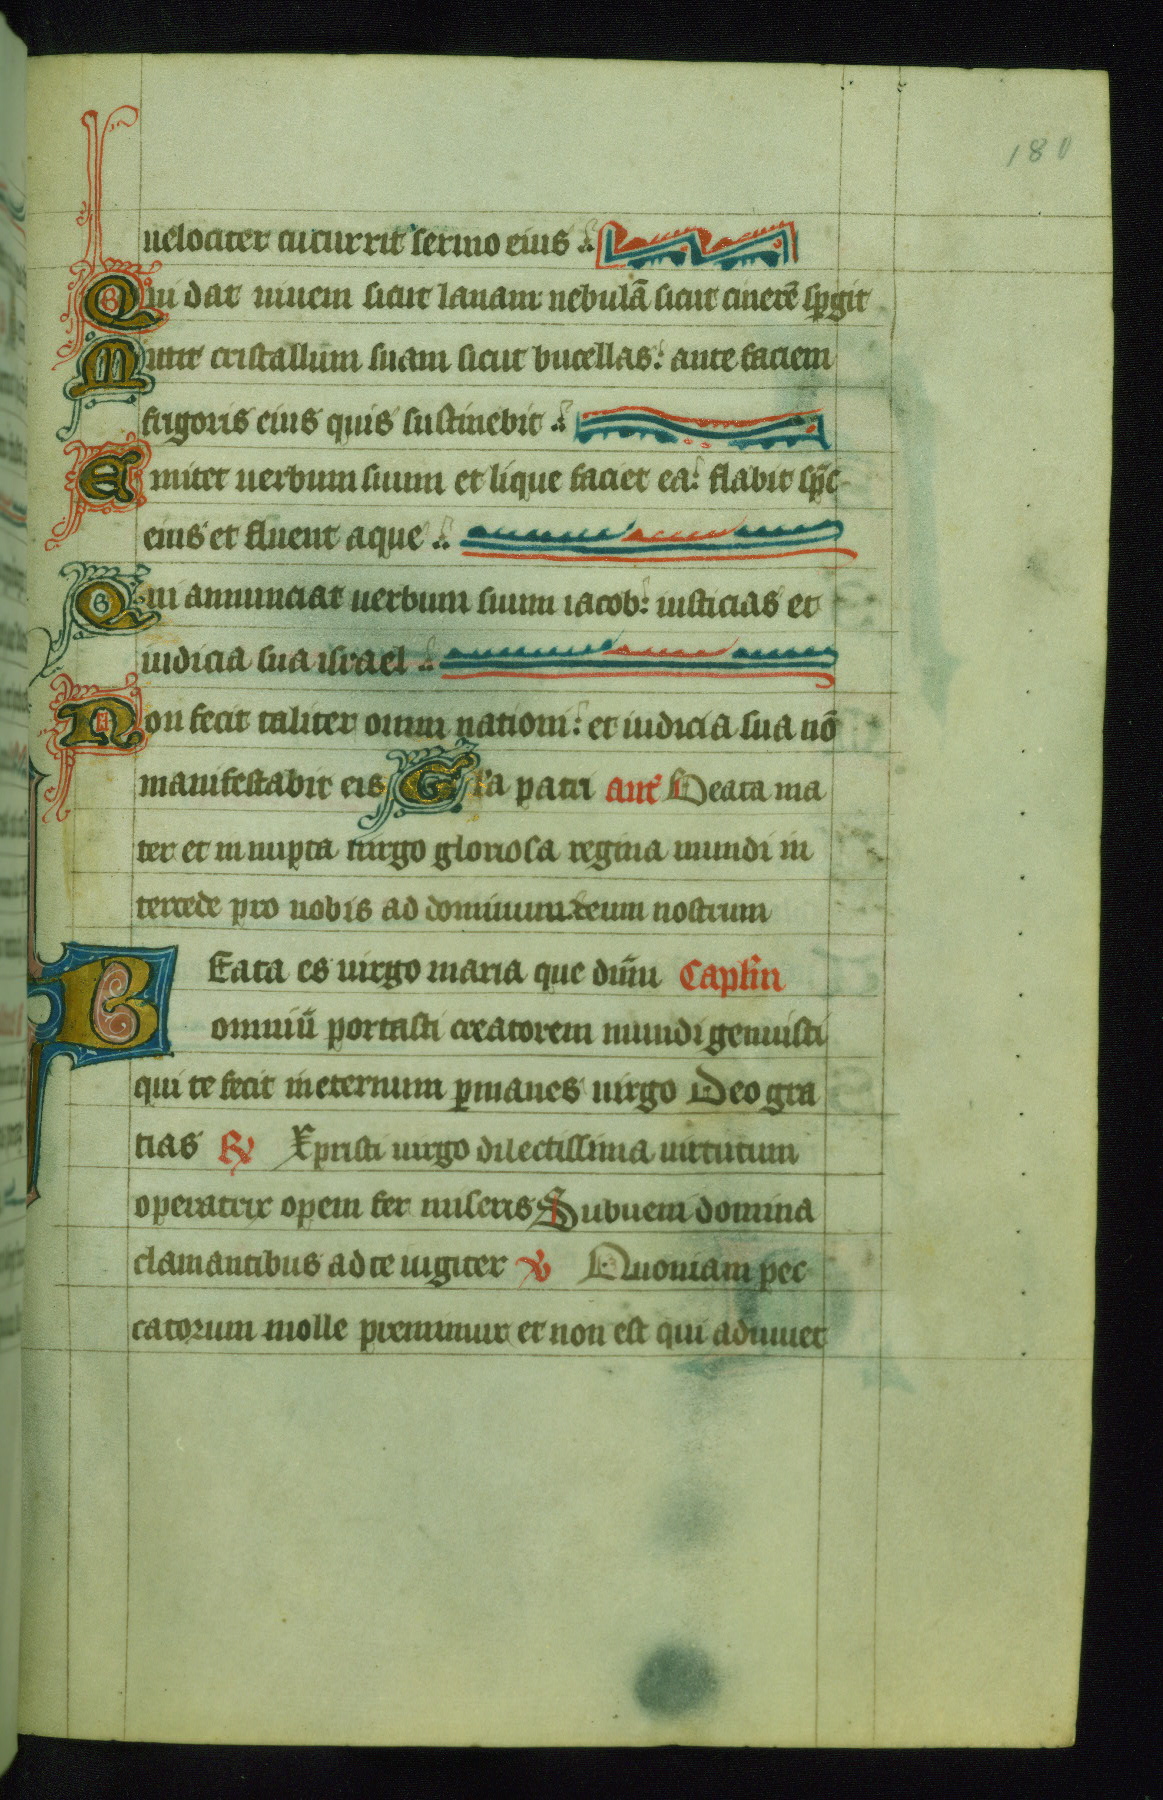 180
uelociter cucurrit sermo eius
Qui dat niuem sicut lanam nebulā sicut cinerē spͣgit
Mittit cristallum suam sicut bucellas: ante faciem
frigoris eius quis sustinebit
Emittet uerbum suum et lique faciet ea: flabit spc̄
eius et fluent aque
Qui annunciat uerbum suum iacob: iusticias et
iudicia sua israel
Non fecit taliter omni nationi: et iudicia sua nō
manifestabit eis Gl̓a patri ant̓ Beata ma
ter et in nupta uirgo gloriosa regina mundi in
tercede pro nobis ad dominum deum nostrum
BEata es uirgo maria que dn̄m Capl̓m
omniū portasti creatorem mundi genuisti
qui te fecit in eternum ꝑmanes uirgo Deo gra
tias ℟ Xpristi uirgo dilectissima uirtutum
operatrix opem fer miseris Subueni domina
clamantibus ad te iugiter ℣ Quoniam pec
catorum molle premimur et non est qui adiuuet